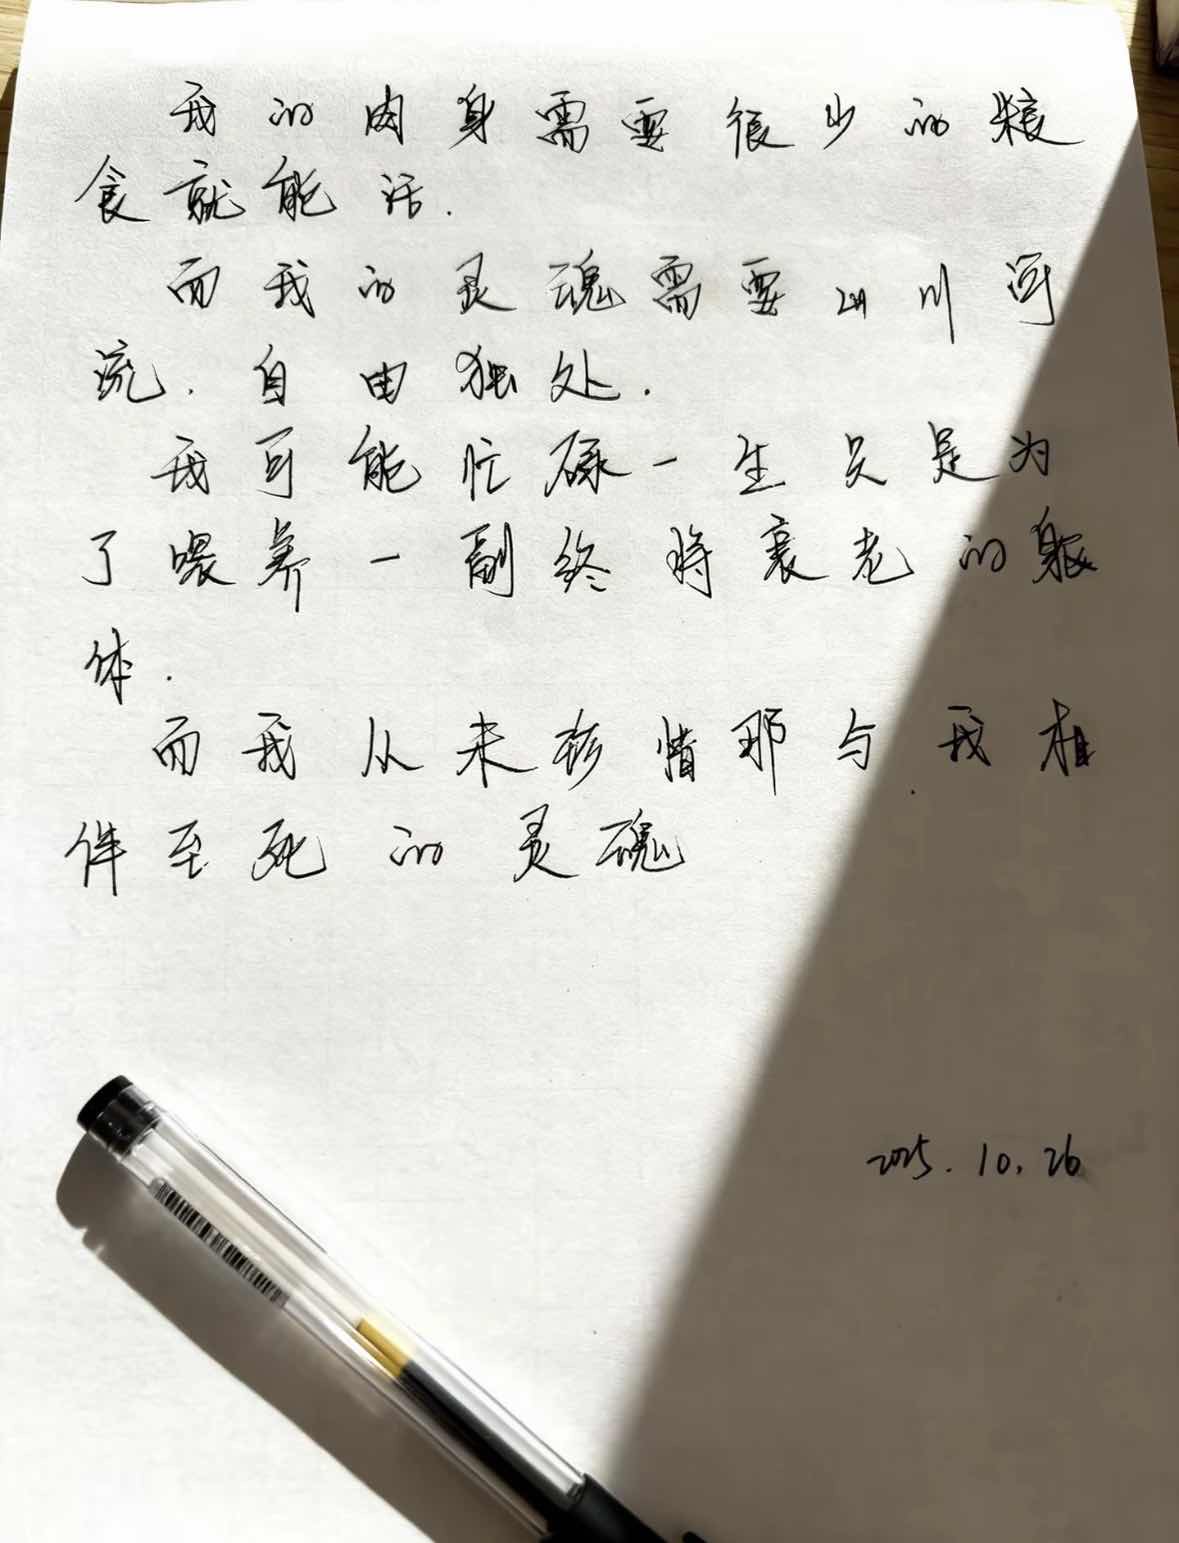 我的肉身需要很少的粮
食就能活.
而我的灵魂需要山川河
流.自由独处.
我可能忙碌一生只是为
了喂养一副终将衰老的躯
体.
而我从未珍惜那与我相
伴至死的灵魂
2025.10.26